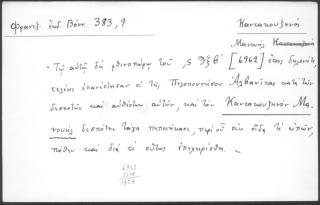 Φραντζ. ἐκδ. Βόνν. 383, 9
Καντακουζηνός
Μανουήλ
" Τῷ αὐτῷ δὲ φθινοπώρῳ τοῦ ͵ϛ Ϡξβ´ [6962] ἔτους
τελείως ἐπανέστησαν οἱ τῆς Πελοποννήσου Ἀλβανῖται κατὰ τῶν
δεσποτῶν καὶ αὐθεντῶν αὐτῶν, καὶ τὸν Καντακουζηνὸν Μα-
νουὴλ δεσπότην τάχα πεποιήκασι, περὶ οὗ οὐκ οἶδα τί εἰπεῖν,
πόθεν καὶ διὰ τί οὕτως ἐπεχειρίσθη. "
6962
5508
1454